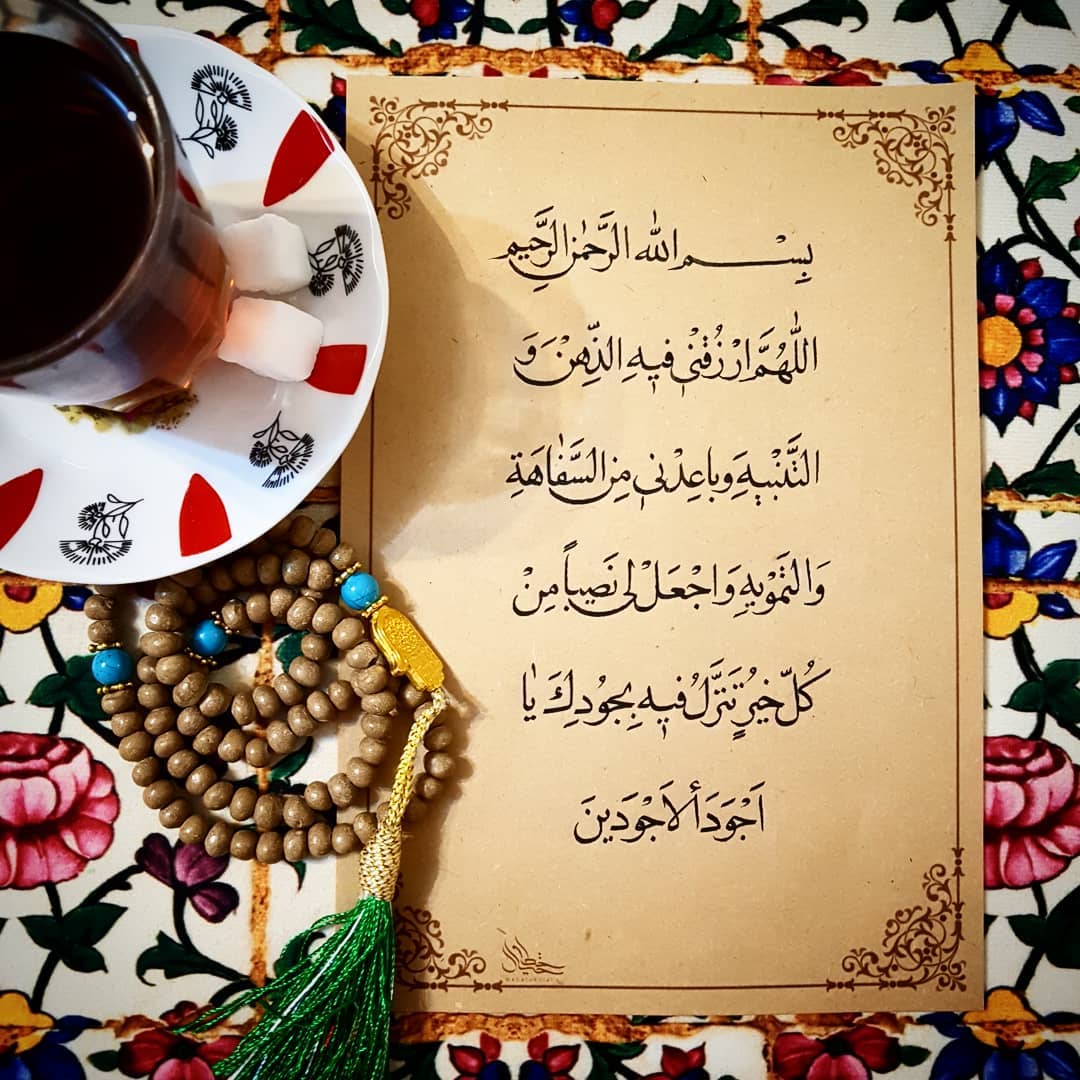 بِسْمِ اللّٰهِ الرَّحْمٰنِ الرَّحِيمِ
اللّٰهُمَّ ارْزُقْنٖى فٖيهِ الذِّهْنَ وَ
التَّنْبٖيهَ وَ باعِدْنٖى مِنَ السَّفٰاهَةِ
وَ التَّمْوٖيهِ وَ اجْعَلْ لٖى نَصٖيباً مِنْ
كُلِّ خَيْرٍ تُنَزِّلُ فٖيهِ بِجُودِكَ يٰا
اَجْوَدَ ألاَجْوَدٖينَ